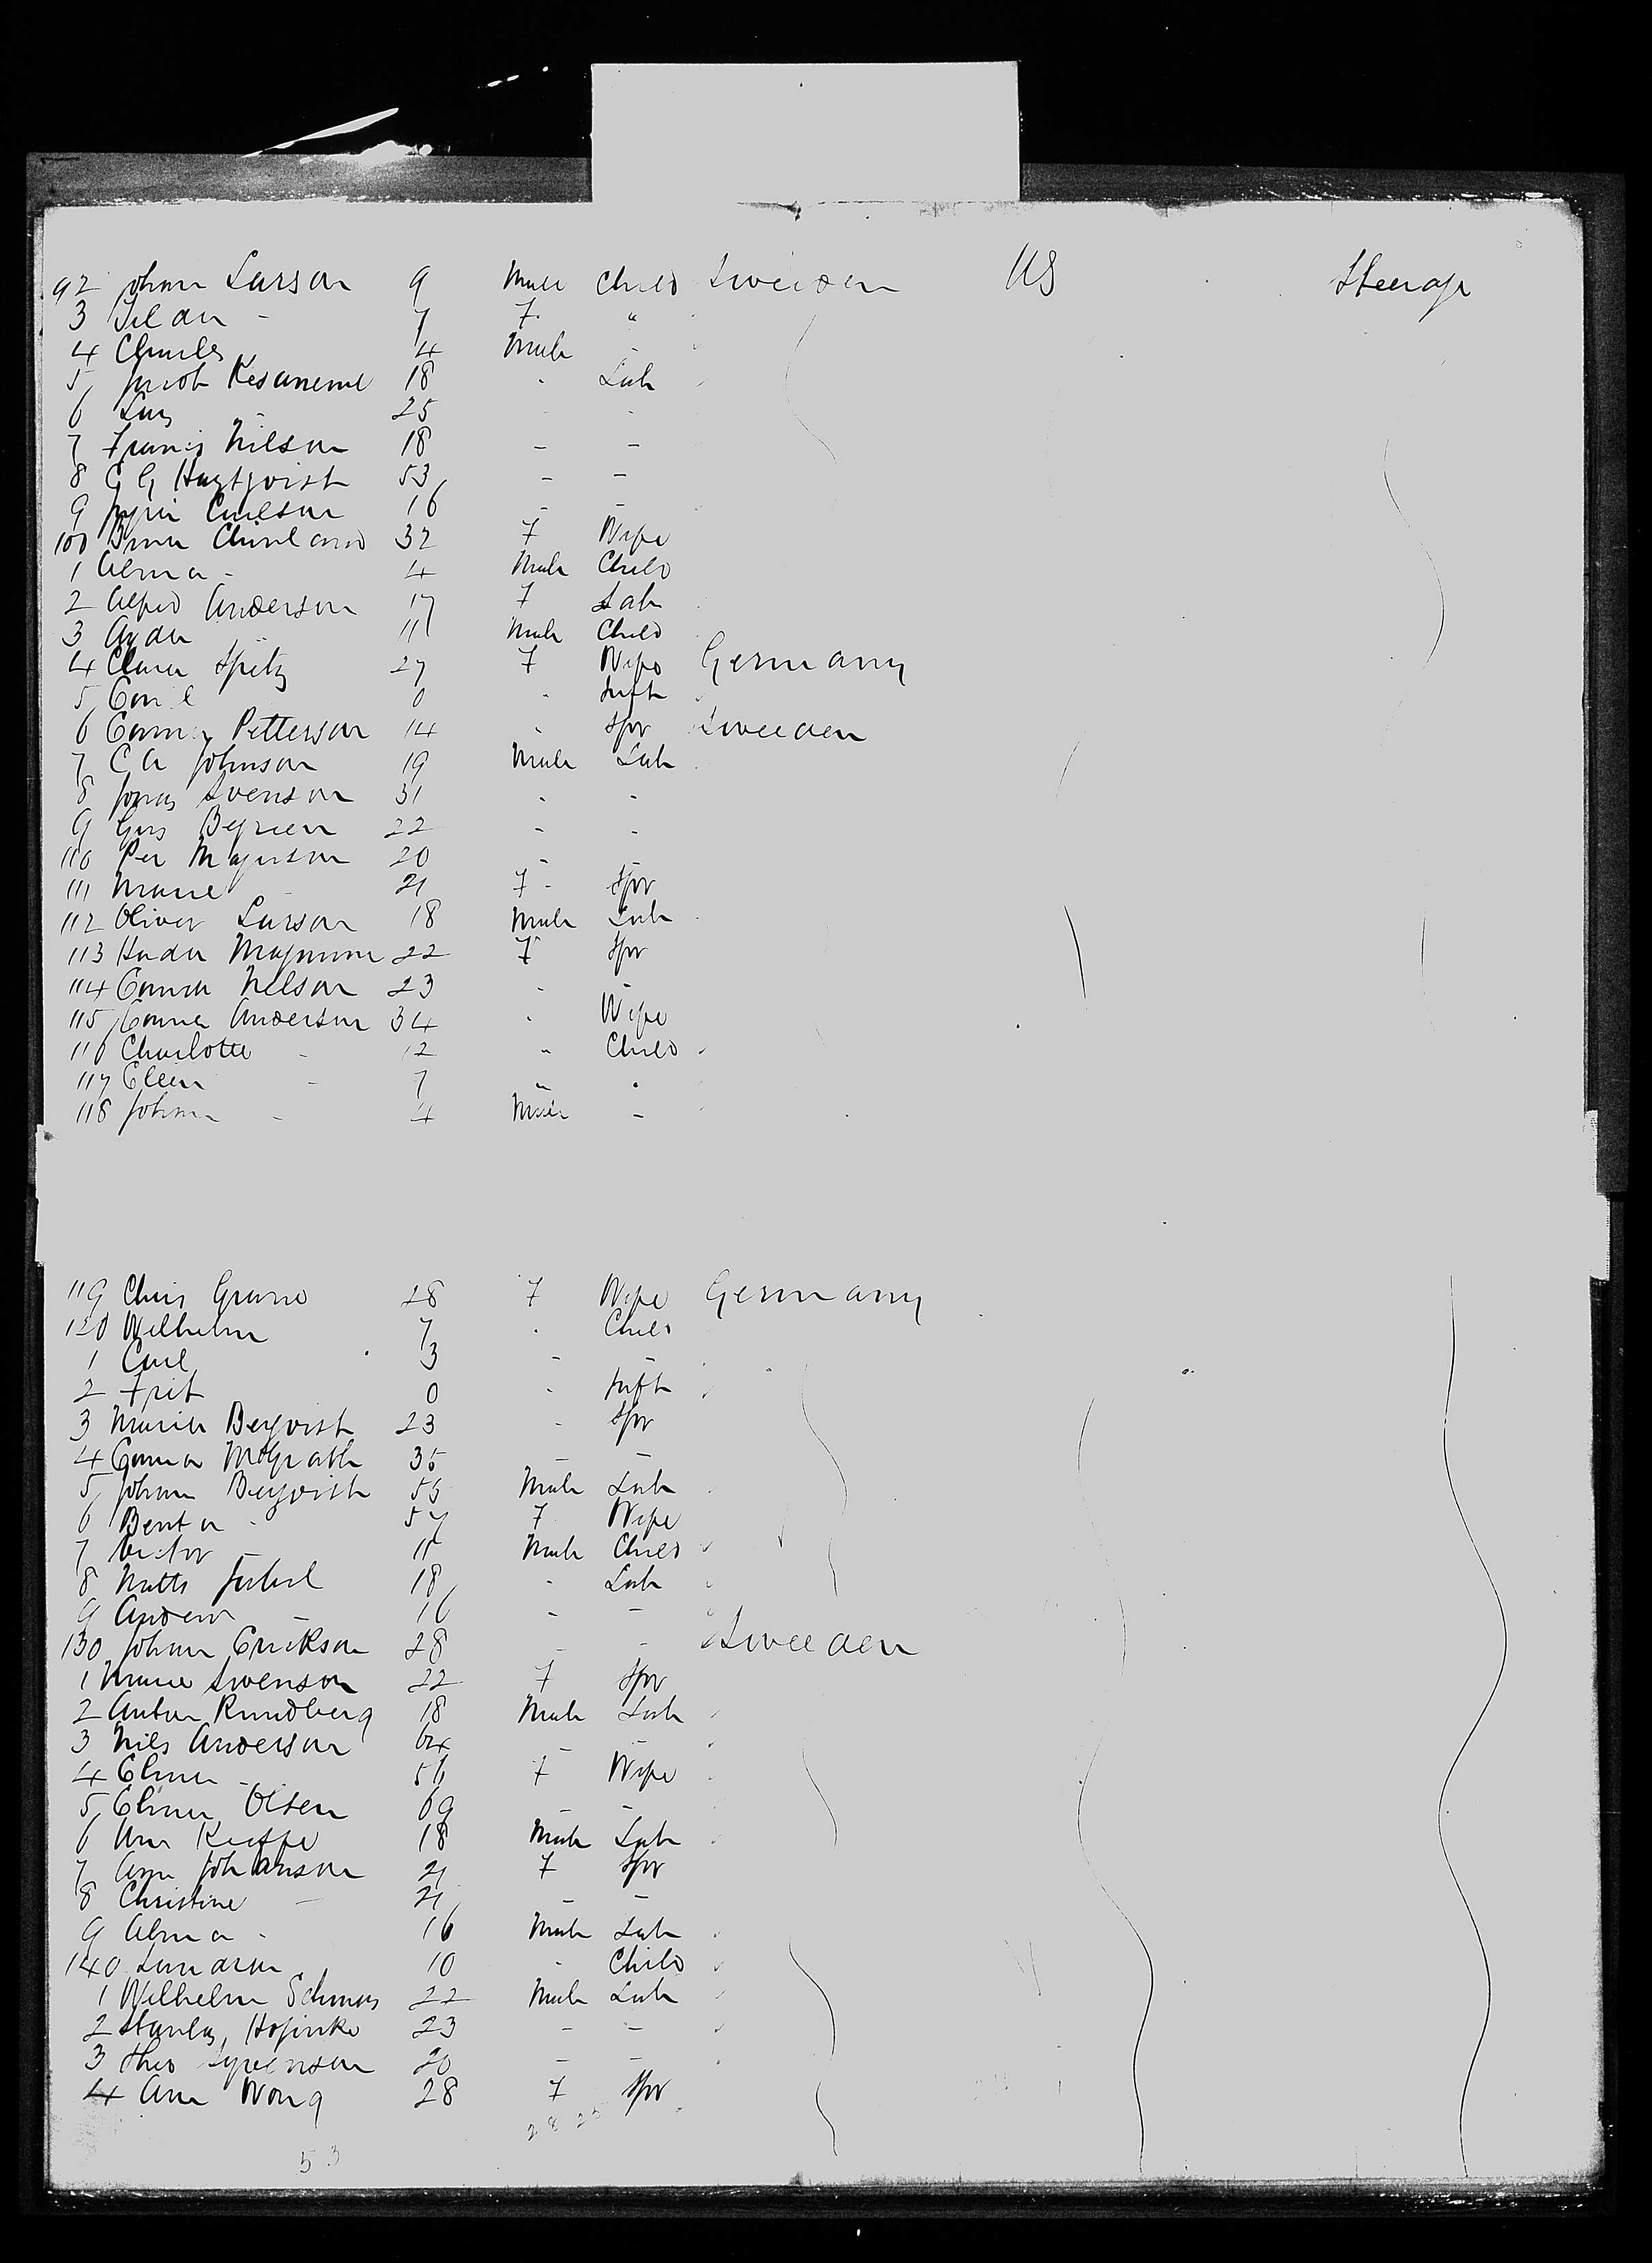 92 Johan Larson 9 Male Child Sweeden US Steerage
3 Tilda - 7 F "
4 Charles 4 Male -
5 Jacob 18 - Lab
6 25 - -
7 Francis Nilson 18 - -
8 C G Hagqvist 53 - -
9 Carlson 16 - -
100 32 F Wife
1 Alma - 4 Male Child
2 Alfred Anderson 17 F Lab
3 11 Male Child
4 Clara Spitz 27 F Wife Germany
5 Emil 0 - Inft
6 Emma Petterson 14 - Spr Sweeden
7 C A Johnson 19 Male Lab
8 Jonas Svenson 31 - -
9 Gus 22 - -
110 Per Magnuson 20 - -
111 Marie - 21 F - Spr
112 Oliver Larson 18 Male Lab
113 Hada 22 F Spr
114 Emma Nelson 23 - -
115 Emma Anderson 34 - Wife
116 Charlotte - 12 " Child
117 Ellen - 7 " "
118 Johan - 4 Male -
119 28 F Wife Germany
120 Wilhelm 7 - Child
1 Carl 3 - -
2 Frit 0 - Inft
3 Maria Berqvist 23 - Spr
4 Emma McGrath 35 - -
5 Johan Berqvist 55 Male Lab
6 Benta - 57 F Wife
7 Victor - 11 Male Child
8 Matts 18 - Lab
9 Andrew - 16 - -
130 Johan Erickson 28 - - Sweeden
1 Marie Swenson 22 F Spr
2 Anton Rundberg 18 Male Lab
3 Nils Anderson 64 - -
4 Elna - 56 F Wife
5 Elna Olsen 69 - -
6 Keeffe 18 Male Lab
7 Johanson 21 F Spr
8 Christine - 21 - -
9 Alma - 16 Male Lab
140 10 - Child
1 Wilhelm 22 Male Lab
2 23 - -
3 Theo 20 - -
4 Ann Wong 28 F Spr
28 25
53